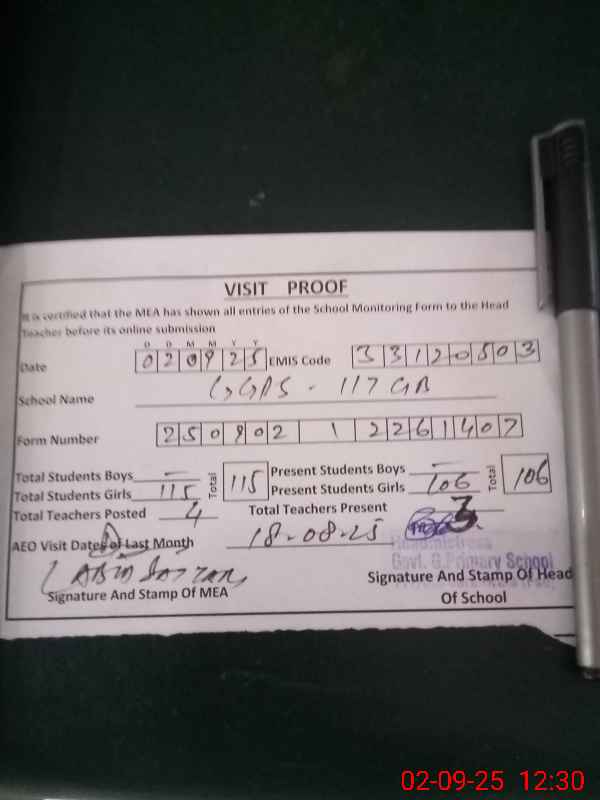 VISIT PROOF
It is certified that the MEA has shown all entries of the School Monitoring Form to the Head
Teacher before its online submission
D D M M Y Y
Date 020925 EMIS Code 33120503
School Name GGPS - 117 GB
Form Number 250902 1 2261407
Total Students Boys — Total 115 Present Students Boys — Total 106
Total Students Girls 115 Present Students Girls 106
Total Teachers Posted 4 Total Teachers Present 3
AEO Visit Dates of Last Month 18-08-25
Headmistress
Govt. G.Primary School
Signature And Stamp Of MEA
Signature And Stamp Of Head
Of School
02-09-25 12:30